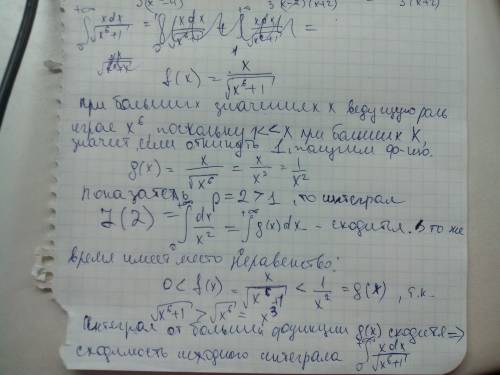 3(x+2)
∫₀^{+∞} xdx/√(x⁶+1) = ∫₀ xdx/√(x⁶+1) + ∫₁^{+∞} xdx/√(x⁶+1) =
f(x) = x/√(x⁶+1)
при больших значениях x ведущую роль
играе x⁶ поскольку 1<<x при больших x,
значит, если откинуть 1, получим ф-ию.
g(x) = x/√x⁶ = x/x³ = 1/x²
показатель p=2>1, то интеграл
J(2) = ∫₀^{+∞} dx/x² = ∫₀^{+∞} g(x)dx - сходится. В то же
время имеет место неравенство:
0 < f(x) = x/√(x⁶+1) < 1/x² = g(x), т.к.
√(x⁶+1) > √x⁶ = x³
Интеграл от большей функции g(x) сходится ⇒
сходимость исходного интеграла ∫₀^{+∞} xdx/√(x⁶+1)